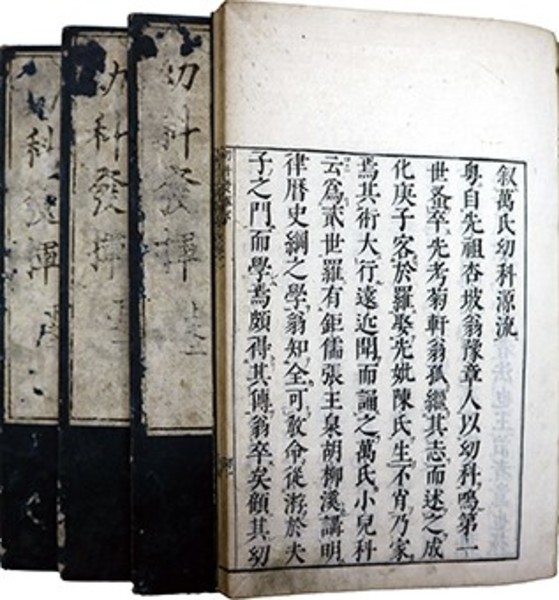 叙萬氏幼科源流
粤自先祖杏坡翁豫章人以幼科鳴第一
世蚤卒先考菊軒翁孤繼其志而述之成
化庚子客於羅娶先妣陳氏生不肖乃家
焉其術大行遠近聞而誦之萬氏小兒科
云爲貳世羅有鉅儒張王泉胡柳溪講明
律暦史綱之學翁知全可敎命從游於夫
子之門而學焉頗得其傳翁卒矣顧其幼
幼科發揮
幼科發揮
幼科發揮